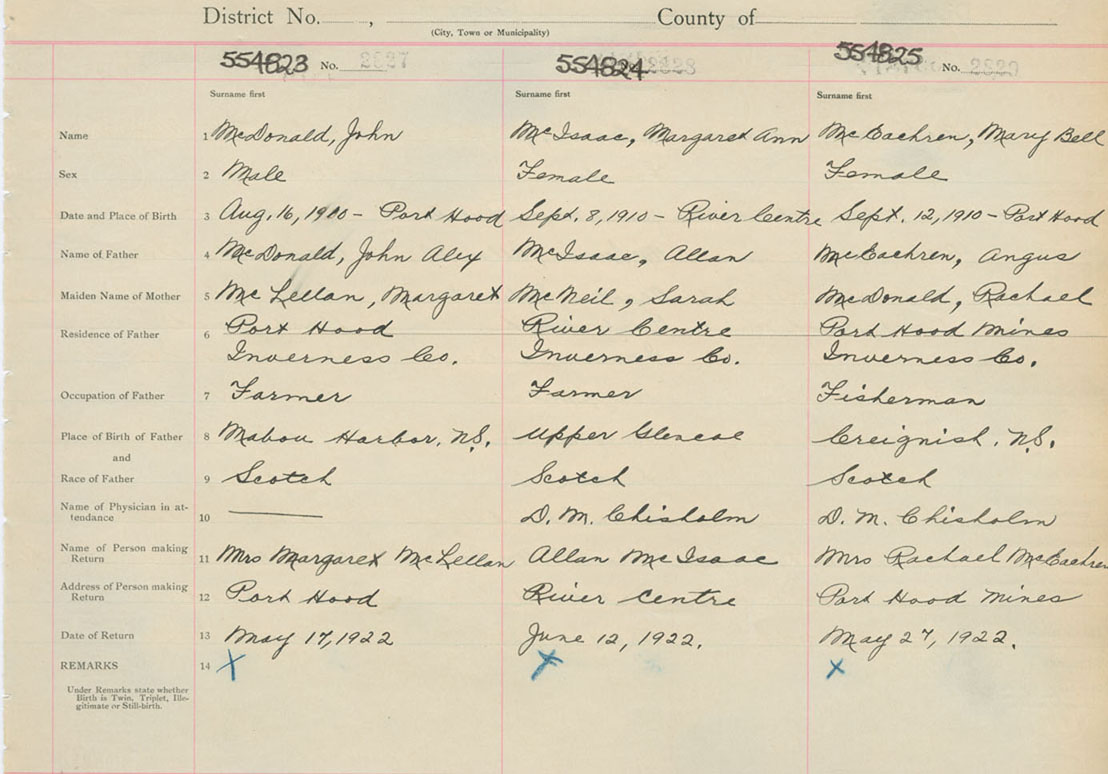 District No. , County of
(City, Town or Municipality)
554823 No. 2827 554824 2828 554825 No. 2829
Surname first Surname first Surname first
Name 1 McDonald, John McIsaac, Margaret Ann McEachren, Mary Bell
Sex 2 Male Female Female
Date and Place of Birth 3 Aug. 16, 1910 - Port Hood Sept. 8, 1910 - River Centre Sept. 12, 1910 - Port Hood
Name of Father 4 McDonald, John Alex McIsaac, Allan McEachren, Angus
Maiden Name of Mother 5 McLellan, Margaret McNeil, Sarah McDonald, Rachael
Residence of Father 6 Port Hood River Centre Port Hood Mines
Inverness Co. Inverness Co. Inverness Co.
Occupation of Father 7 Farmer Farmer Fisherman
Place of Birth of Father 8 Mabou Harbor, N.S. Upper Glencoe Creignish, N.S.
and
Race of Father 9 Scotch Scotch Scotch
Name of Physician in at-
tendance 10 D. M. Chisholm D. M. Chisholm
Name of Person making
Return 11 Mrs Margaret McLellan Allan McIsaac Mrs Rachael McEachren
Address of Person making
Return 12 Port Hood River Centre Port Hood Mines
Date of Return 13 May 17, 1922 June 12, 1922. May 27, 1922.
REMARKS 14 X X X
Under Remarks state whether
Birth is Twin, Triplet, Ille-
gitimate or Still-birth.